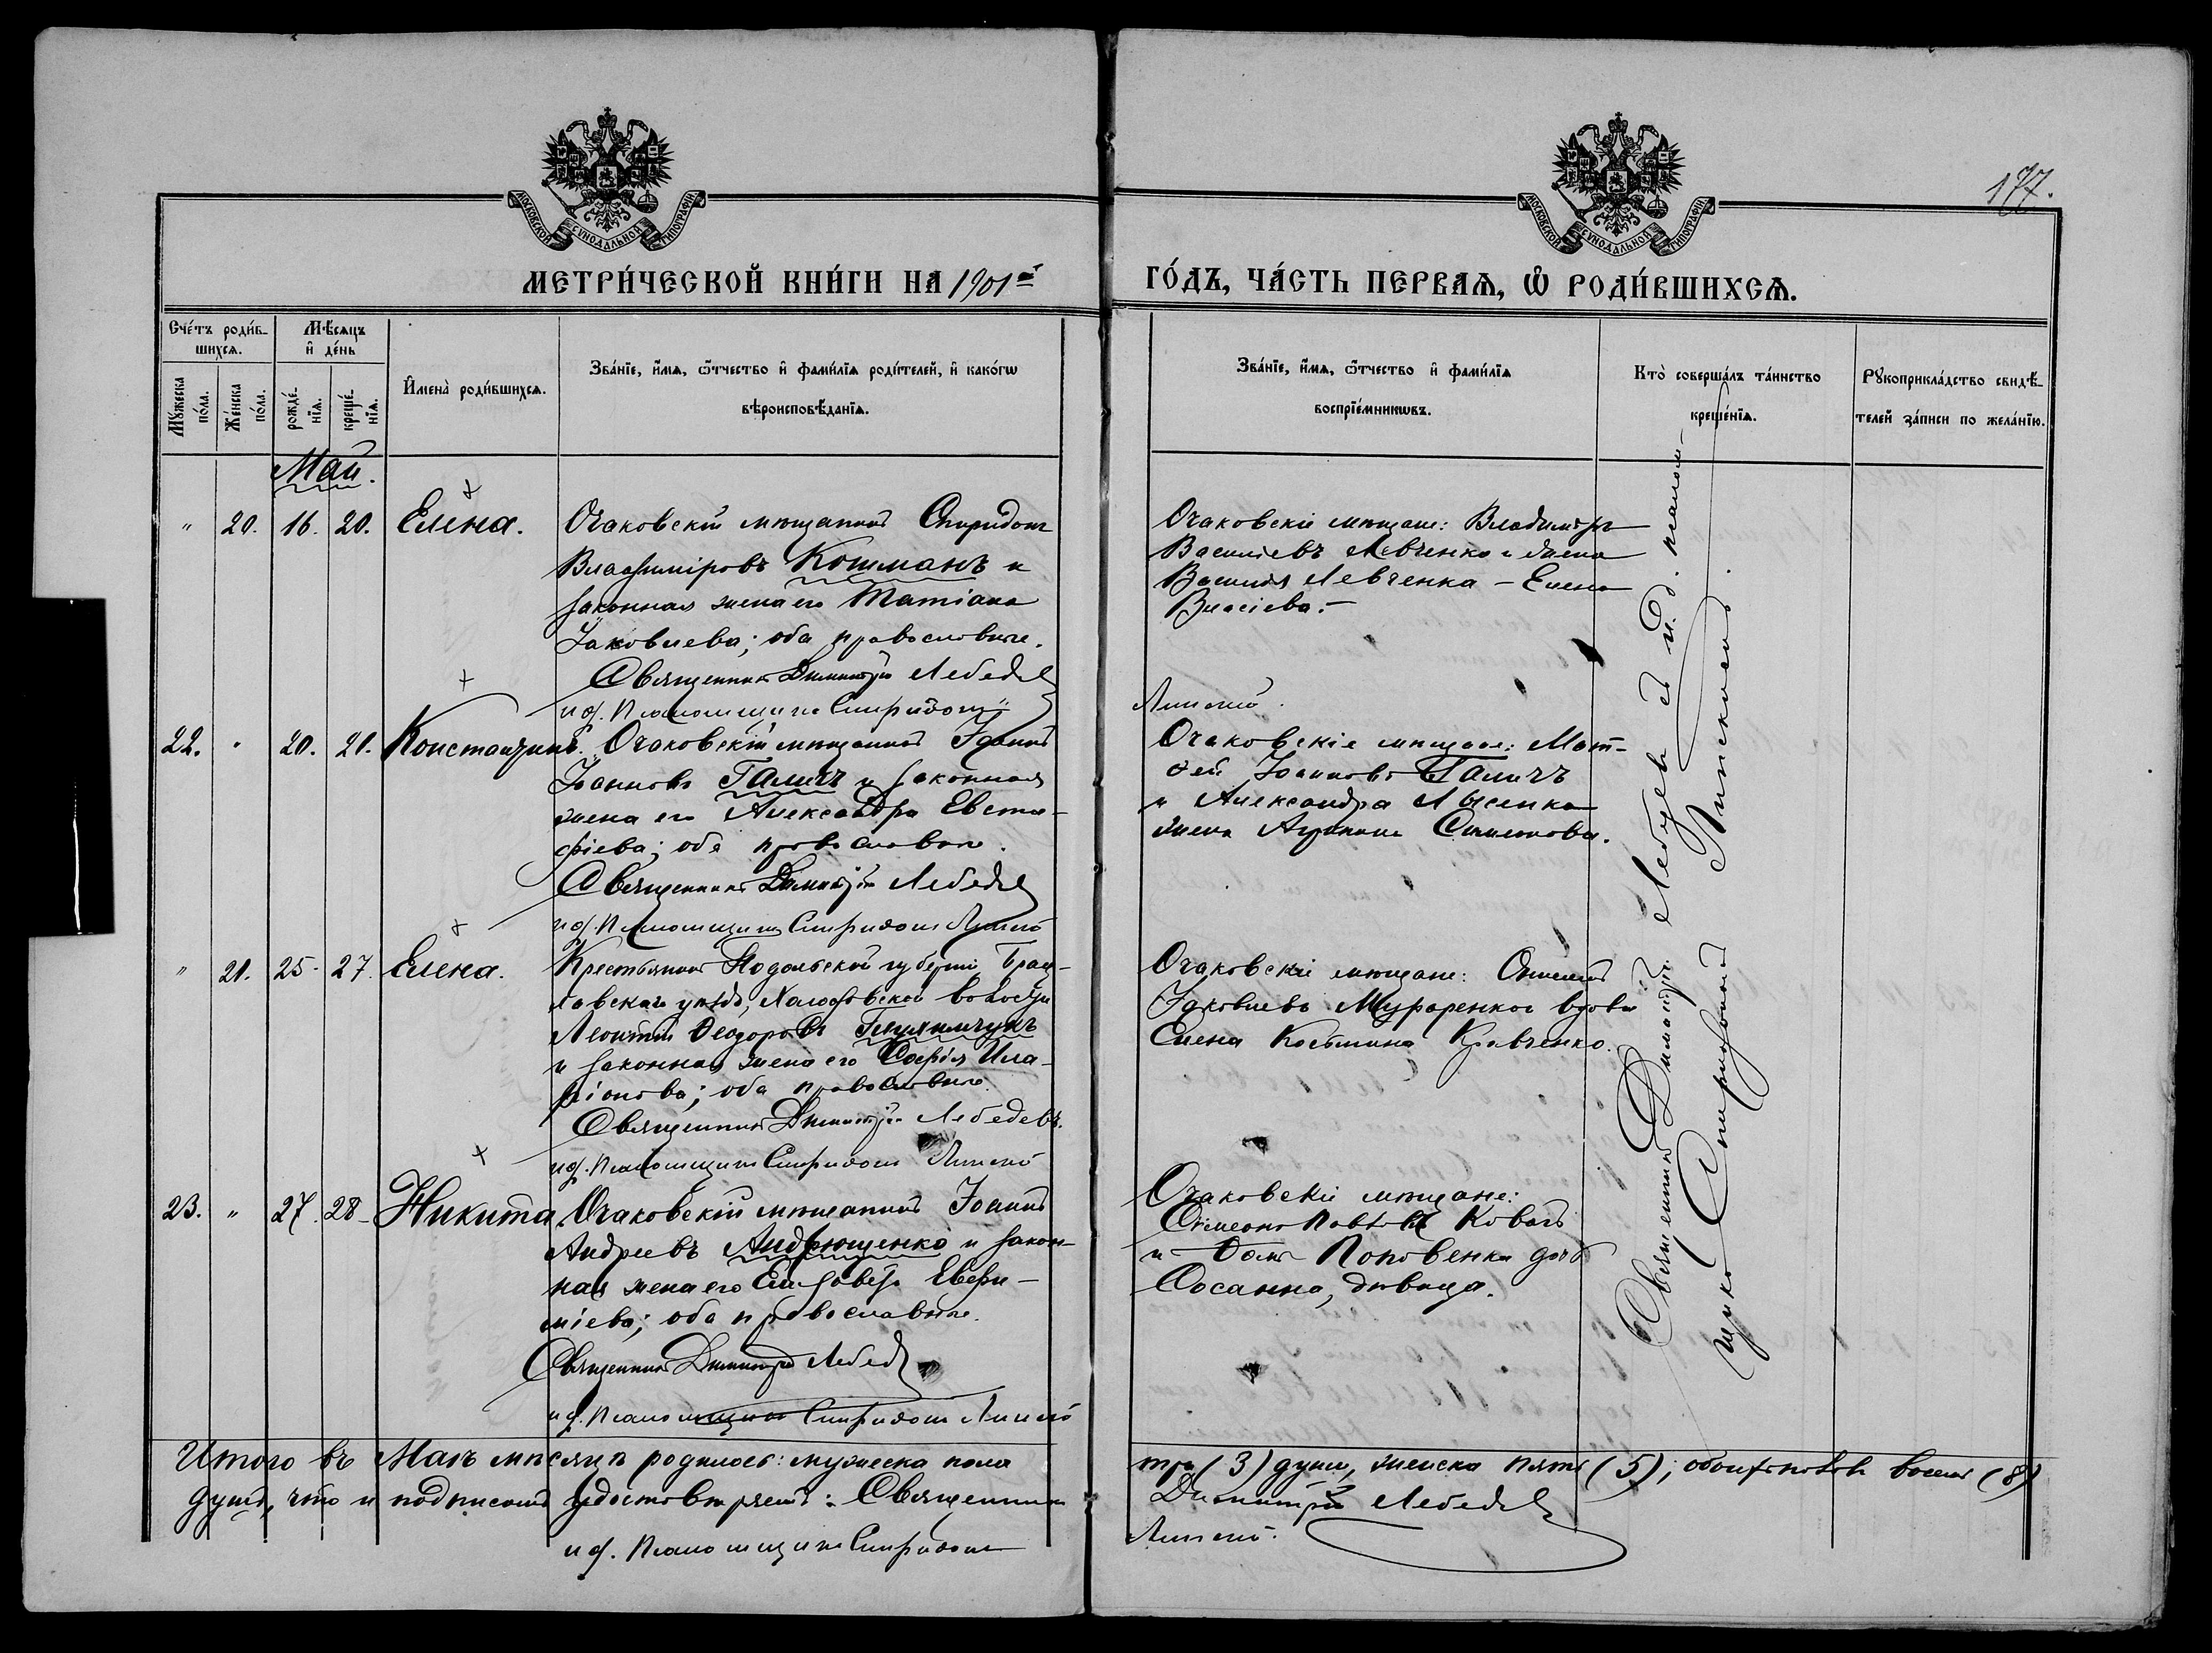 177.
МОСКОВСКОЙ СѴНОДАЛЬНОЙ ТИПОГРАФІИ.
МОСКОВСКОЙ СѴНОДАЛЬНОЙ ТИПОГРАФІИ.
МЕТРИ́ЧЕСКОЙ КНИ́ГИ НА 1901й
ГО́ДЪ, ЧА́СТЬ ПЕРВАѦ, Ѡ҆ РОДИ́ВШИХСѦ.
Сче́тъ роди́в-
шихсѧ.
Мѣ́сѧцъ
и҆ де́нь
Мꙋ́жеска
по́ла.
Же́нска
по́ла.
рожде́-
нїѧ.
креще́-
нїѧ.
И҆мена̀ роди́вшихсѧ.
Зва́нїе, и҆́мѧ, ѻ҆́тчество и҆ фами́лїѧ роди́телей, и҆ како́гѡ
вѣроисповѣ́данїѧ.
Зва́нїе, и҆́мѧ, ѻ҆́тчество и҆ фами́лїѧ
воспрїе́мникѡвъ.
Кто̀ соверша́лъ та́инство
креще́нїѧ.
Рꙋкоприкла́дство свидѣ́-
телей за́писи по жела́нїю.
Май.
" 20. 16. 20. Елена.
Очаковскій мѣщанинъ Спиридонъ
Владиміровъ Кошманъ и
законная жена его Татіана
Іаковлева; оба православные.
Священникъ Димитрій Лебедевъ
и д. псаломщика Спиридонъ
Очаковскіе мѣщане: Владиміръ
Василіевъ Левченко и жена
Василія Левченка - Елена
Власіева.-
Липскій.
22. " 20. 21. Константинъ.
Очаковскій мѣщанинъ Іоаннъ
Іоанновъ Галичъ и законная
жена его Александра Евста-
фіева; оба православные.
Священникъ Димитрій Лебедевъ
и д. псаломщика Спиридонъ Липскій
Очаковскіе мѣщане: Мат-
фей Іоанновъ Галичъ
и Александра Лысенка
жена Агрипина Симеонова.
" 21. 25. 27. Елена.
Крестьянинъ Подольской губерніи, Брац-
лавскаго уѣзда, волости
Леонтій Ѳеодоровъ
и законная жена его Софія Ила-
ріонова; оба православные.
Священникъ Димитрій Лебедевъ.
и д. псаломщика Спиридонъ Липскій
Очаковскіе мѣщане:
Іаковлевъ Мураренко и вдова
Елена Косьмина Кравченко.
23. " 27. 28 Никита
Очаковскій мѣщанинъ Іоаннъ
Андреевъ Андрющенко и закон-
ная жена его Елисавета Евфи-
міева; оба православные.
Священникъ Димитрій Лебедевъ
и д. псаломщика Спиридонъ Липскій
Очаковскіе мѣщане:
Симеонъ Павловъ Коваль
и Поповенка дочь
Сосанна, дѣвица.
Священникъ Димитрій Лебедевъ съ и. д. псалом-
щика Спиридономъ Липскимъ.
Итого въ Маѣ мѣсяцѣ родилось: мужеска пола
три (3) души, женска пять (5); обоихъ половъ восемь (8)
душъ, что и подписомъ удостовѣряемъ: Священникъ
Димитрій Лебедевъ
и д. псаломщика Спиридонъ
Липскій.